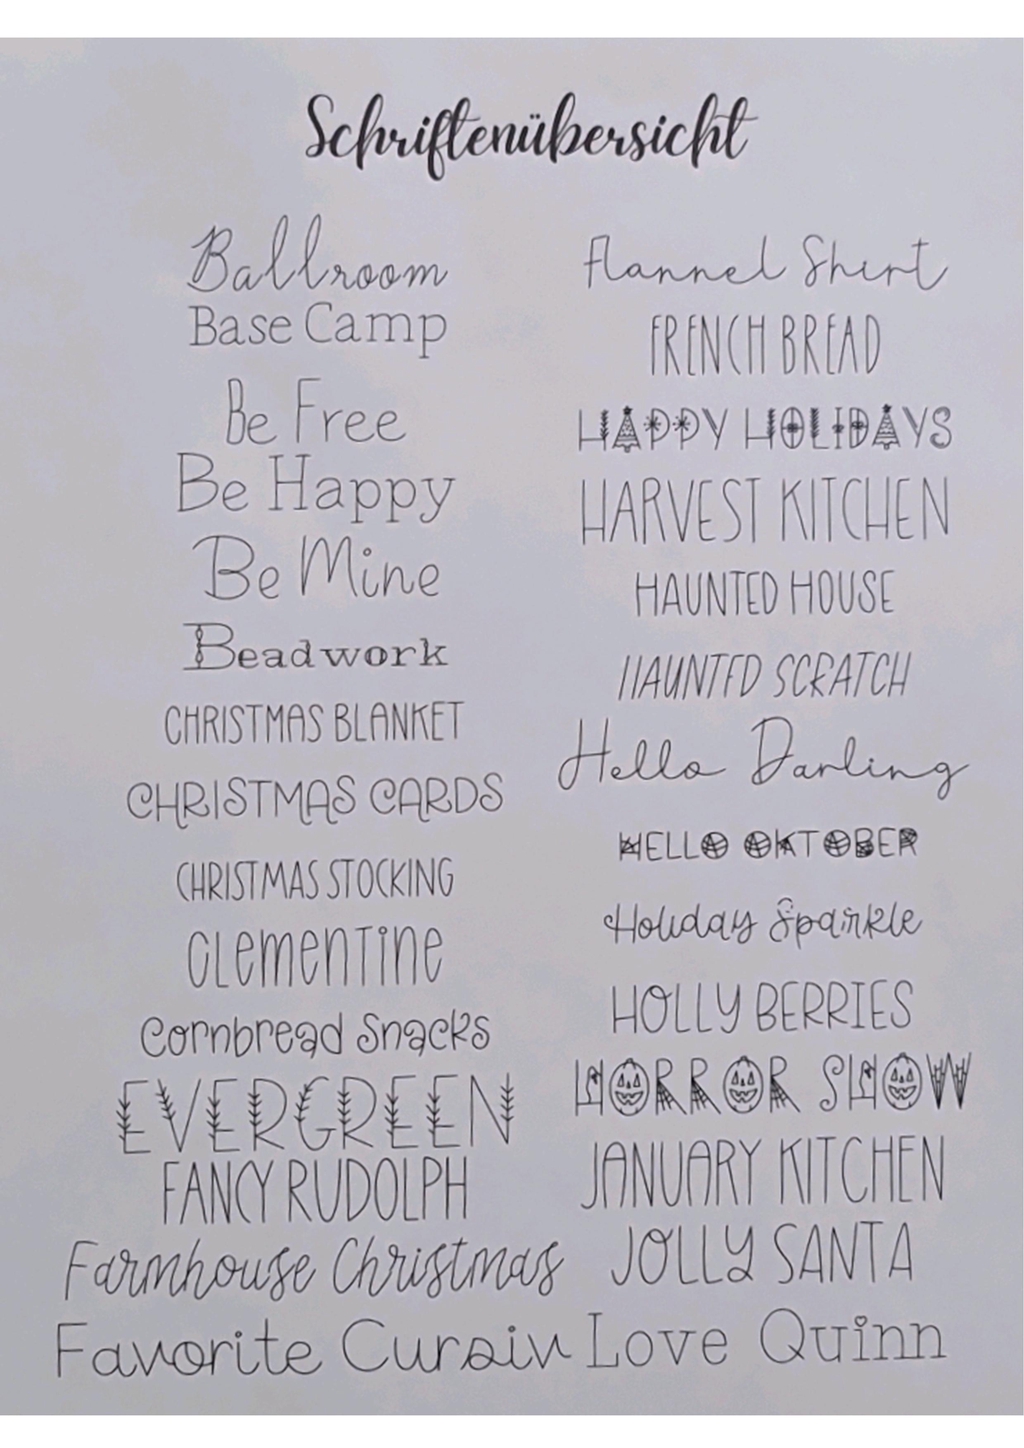 Schriftenübersicht
Ballroom
Base Camp
Be Free
Be Happy
Be Mine
Beadwork
CHRISTMAS BLANKET
CHRISTMAS CARDS
CHRISTMAS STOCKING
Clementine
Cornbread Snacks
EVERGREEN
FANCY RUDOLPH
Farmhouse Christmas
Favorite Cursiv
Flannel Shirt
FRENCH BREAD
HAPPY HOLIDAYS
HARVEST KITCHEN
HAUNTED HOUSE
HAUNTED SCRATCH
Hello Darling
HELLO OKTOBER
Holiday Sparkle
HOLLY BERRIES
HORROR SHOW
JANUARY KITCHEN
JOLLY SANTA
Love Quinn